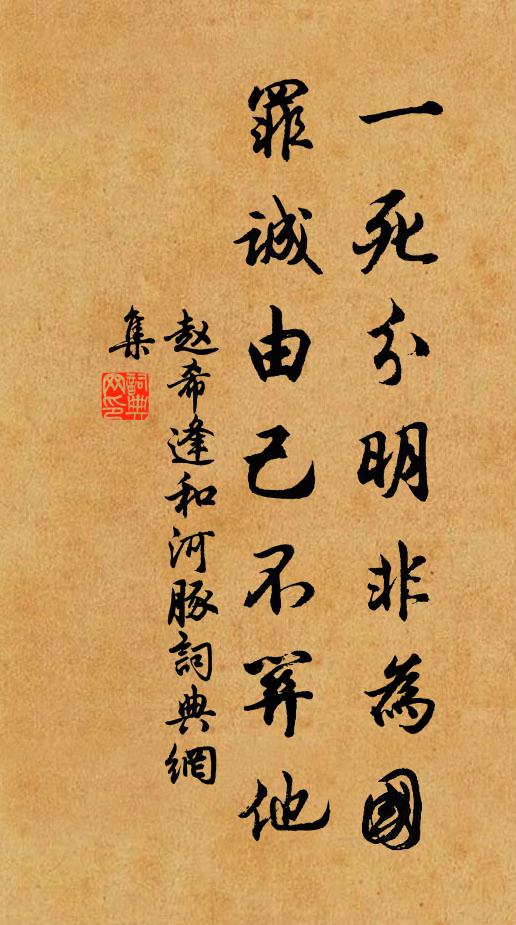 一死分明非為國
罪誠由己不関他
赵希逢和河豚詞典網
集
詞典
网印